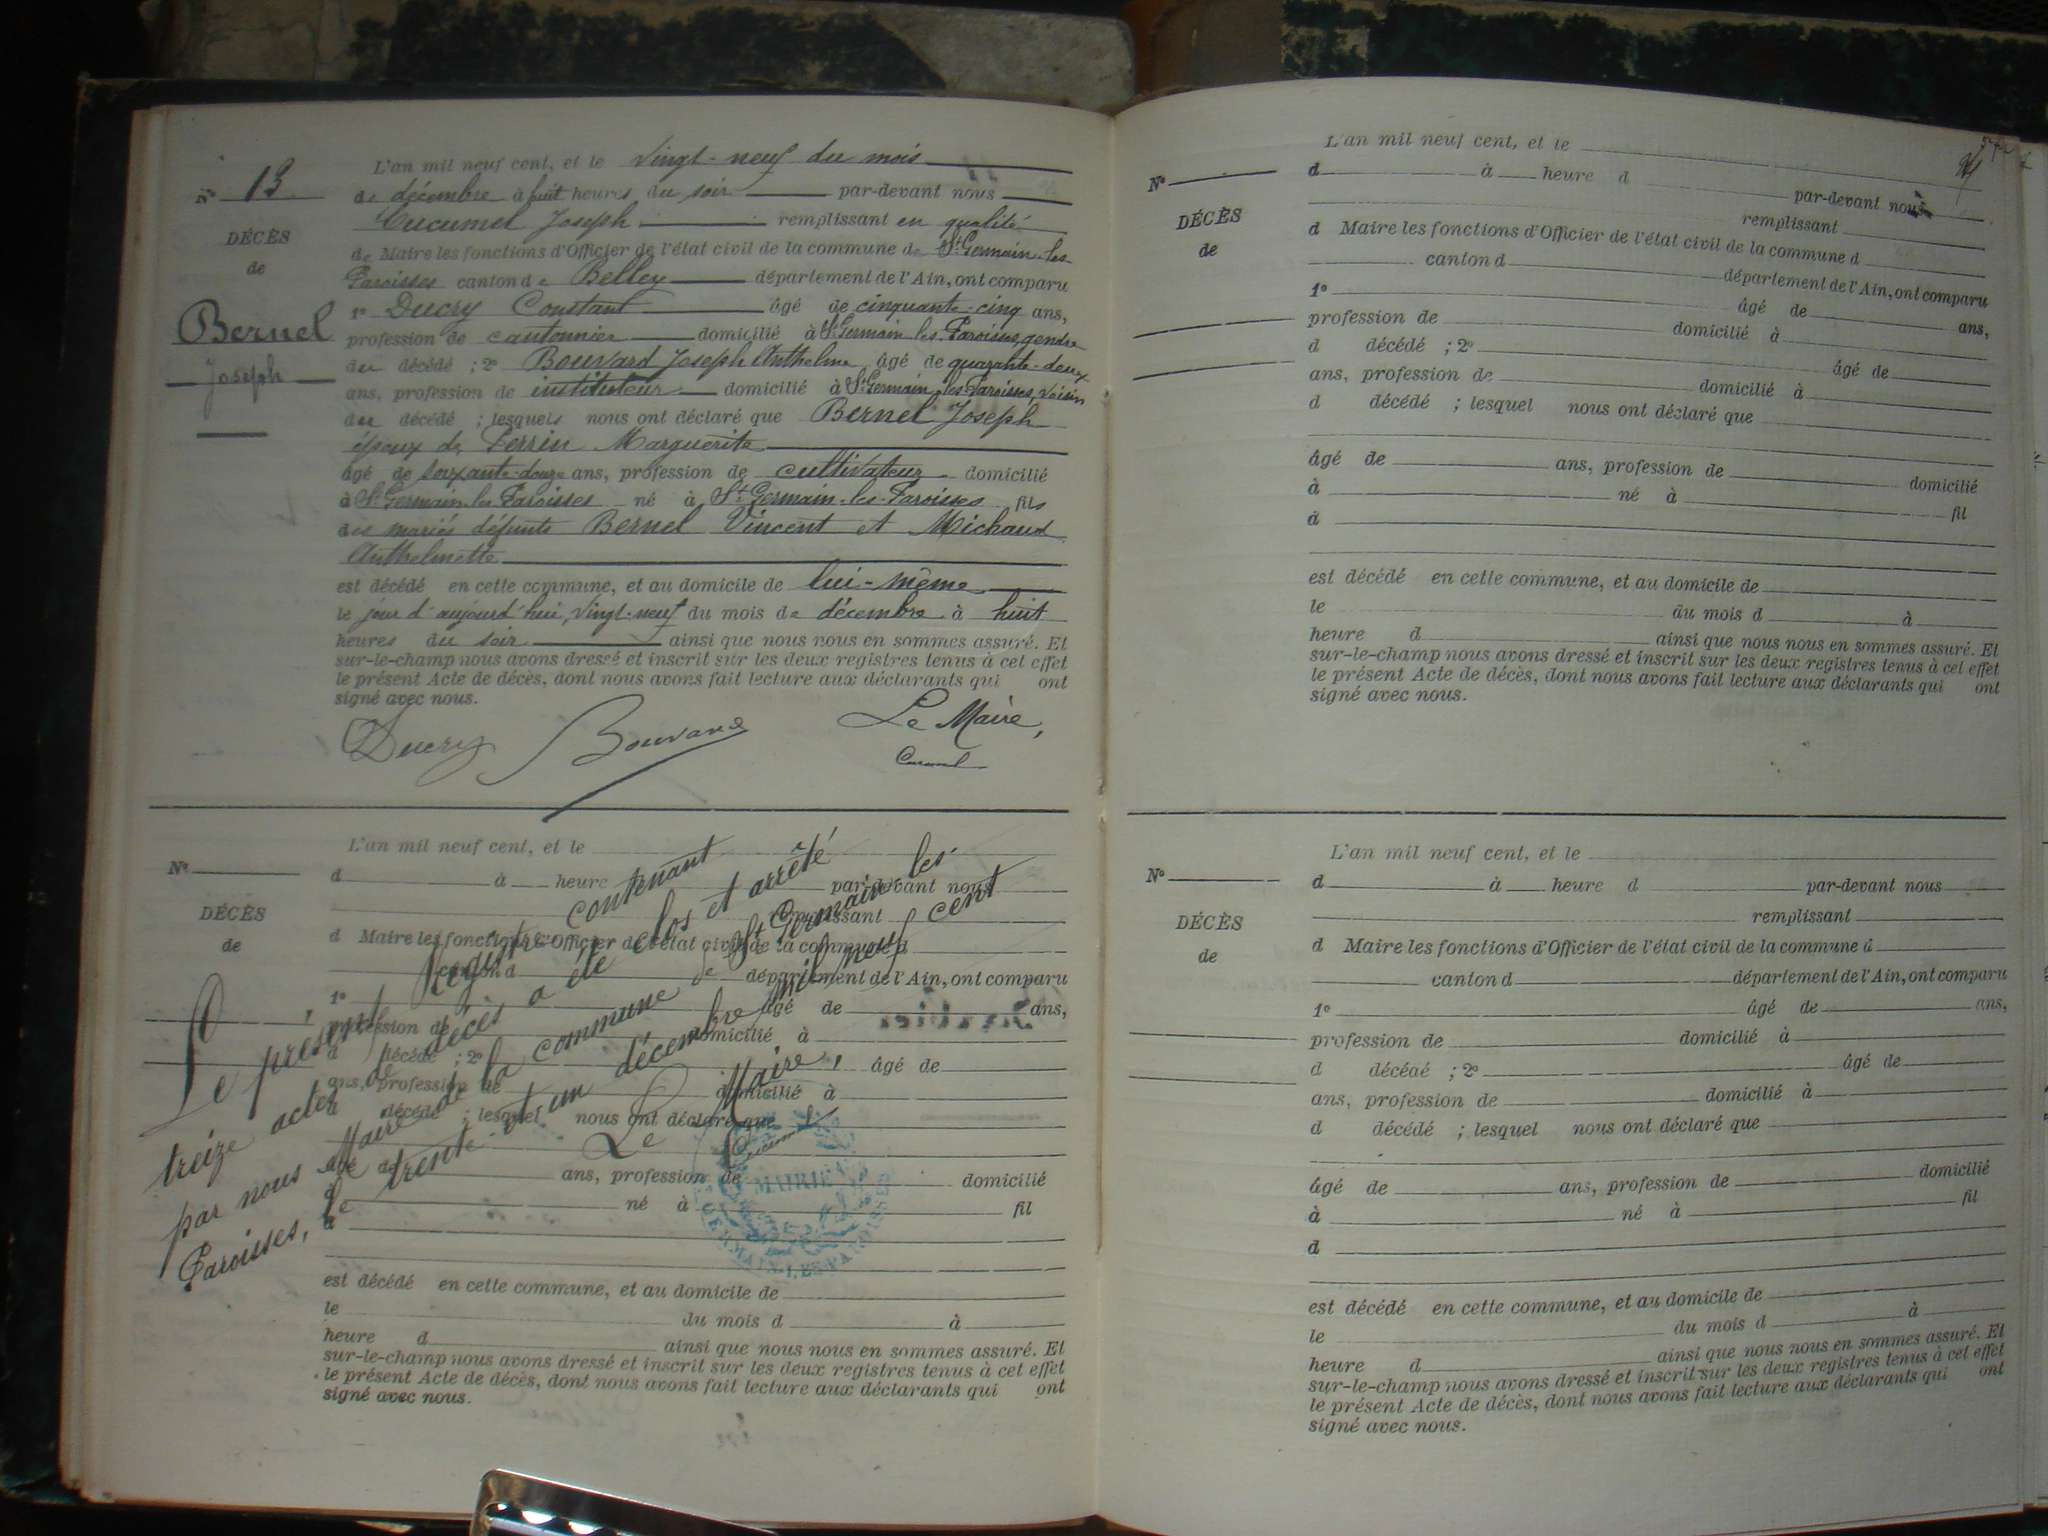 Nº 13
DÉCÈS
de
Bernel
Joseph
L'an mil neuf cent, et le vingt-neuf du mois
de décembre à huit heures du soir par-devant nous
Cucumel Joseph remplissant en qualité
de Maire les fonctions d'Officier de l'état civil de la commune de St Germain-les-
Paroisses canton de Belley département de l'Ain, ont comparu
1º Ducry Constant âgé de cinquante-cinq ans,
profession de cantonnier domicilié à St Germain-les-Paroisses, gendre
du décédé ; 2º Bouvard Joseph Anthelme âgé de quarante-deux
ans, profession de instituteur domicilié à St Germain-les-Paroisses, voisin
du décédé ; lesquels nous ont déclaré que Bernel Joseph
époux de Perrin Marguerite
âgé de soixante-douze ans, profession de cultivateur domicilié
à St Germain-les-Paroisses né à St Germain-les-Paroisses fils
des mariés défunts Bernel Vincent et Michaud
Anthelmette
est décédé en cette commune, et au domicile de lui-même
le jour d'aujourd'hui, vingt-neuf du mois de décembre à huit
heures du soir ainsi que nous nous en sommes assuré. Et
sur-le-champ nous avons dressé et inscrit sur les deux registres tenus à cet effet
le présent Acte de décès, dont nous avons fait lecture aux déclarants qui ont
signé avec nous.
Ducry Bouvard Le Maire,
Cucumel
Nº
DÉCÈS
de
L'an mil neuf cent, et le
d à heure par-devant nous
remplissant
d Maire les fonctions d'Officier de l'état civil de la commune d
canton d département de l'Ain, ont comparu
1º âgé de ans,
profession de domicilié à
d décédé ; 2º âgé de
ans, profession de domicilié à
d décédé ; lesquel nous ont déclaré que
âgé de ans, profession de domicilié
né à fil
d
est décédé en cette commune, et au domicile de
le du mois d à
heure d ainsi que nous nous en sommes assuré. Et
sur-le-champ nous avons dressé et inscrit sur les deux registres tenus à cet effet
le présent Acte de décès, dont nous avons fait lecture aux déclarants qui ont
signé avec nous.
Le présent Registre contenant
treize actes de décès a été clos et arrêté
par nous Maire de la commune de St Germain-les-
Paroisses, le trente et un décembre mil neuf cent
Le Maire,
Cucumel
MAIRIE
GERMAIN-LES-PAROISSES
Nº
DÉCÈS
de
L'an mil neuf cent, et le
d à heure d par-devant nous
remplissant
d Maire les fonctions d'Officier de l'état civil de la commune d
canton d département de l'Ain, ont comparu
1º âgé de ans,
profession de domicilié à
d décédé ; 2º âgé de
ans, profession de domicilié à
d décédé ; lesquel nous ont déclaré que
âgé de ans, profession de domicilié
à né à fil
d
est décédé en cette commune, et au domicile de
le du mois d à
heure d ainsi que nous nous en sommes assuré. Et
sur-le-champ nous avons dressé et inscrit sur les deux registres tenus à cet effet
le présent Acte de décès, dont nous avons fait lecture aux déclarants qui ont
signé avec nous.
Nº
DÉCÈS
de
L'an mil neuf cent, et le
d à heure d par-devant nous
remplissant
d Maire les fonctions d'Officier de l'état civil de la commune d
canton d département de l'Ain, ont comparu
1º âgé de ans,
profession de domicilié à
d décédé ; 2º âgé de
ans, profession de domicilié à
d décédé ; lesquel nous ont déclaré que
âgé de ans, profession de domicilié
à né à fil
d
est décédé en cette commune, et au domicile de
le du mois d à
heure d ainsi que nous nous en sommes assuré. Et
sur-le-champ nous avons dressé et inscrit sur les deux registres tenus à cet effet
le présent Acte de décès, dont nous avons fait lecture aux déclarants qui ont
signé avec nous.